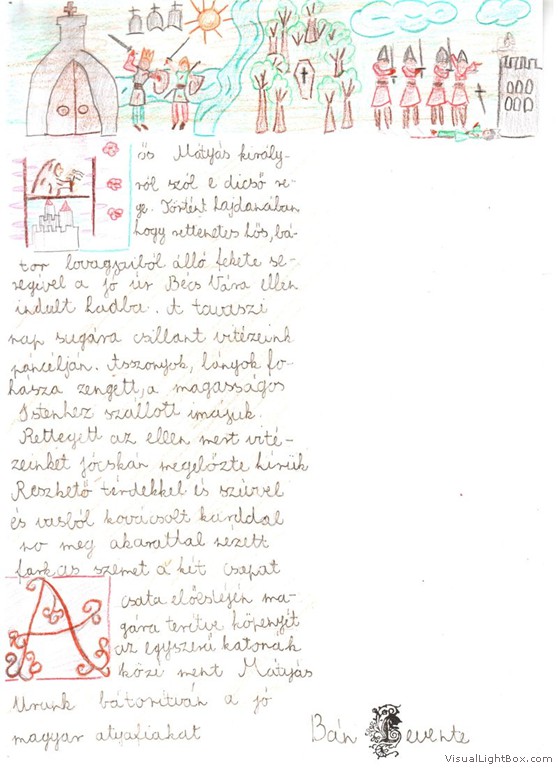 Hős Mátyás király-
ról szól e dicső re-
ge. Történt hajdanában
hogy rettenetes hős, bá-
tor lovagjaiból álló fekete se-
regével a jó úr Bécs Vára ellen
indult hadba. A tavaszi
nap sugára csillant vitézeink
páncélján. Asszonyok, lányok fo-
hásza zengett, a magasságos
Istenhez szállott imájuk.
Rettegett az ellen mert vité-
zeinket jócskán megelőzte hírük
Reszkető térdekkel és szívvel
és vasból kovácsolt karddal
no meg akarattal nézett
farkas szemet a két csapat
A csata előestéjén ma-
gára terítve köpenyét
az egyszerű katonák
közé ment Mátyás
Urunk bátorítván a jó
magyar atyafiakat
Bán Levente
VisualLightBox.com